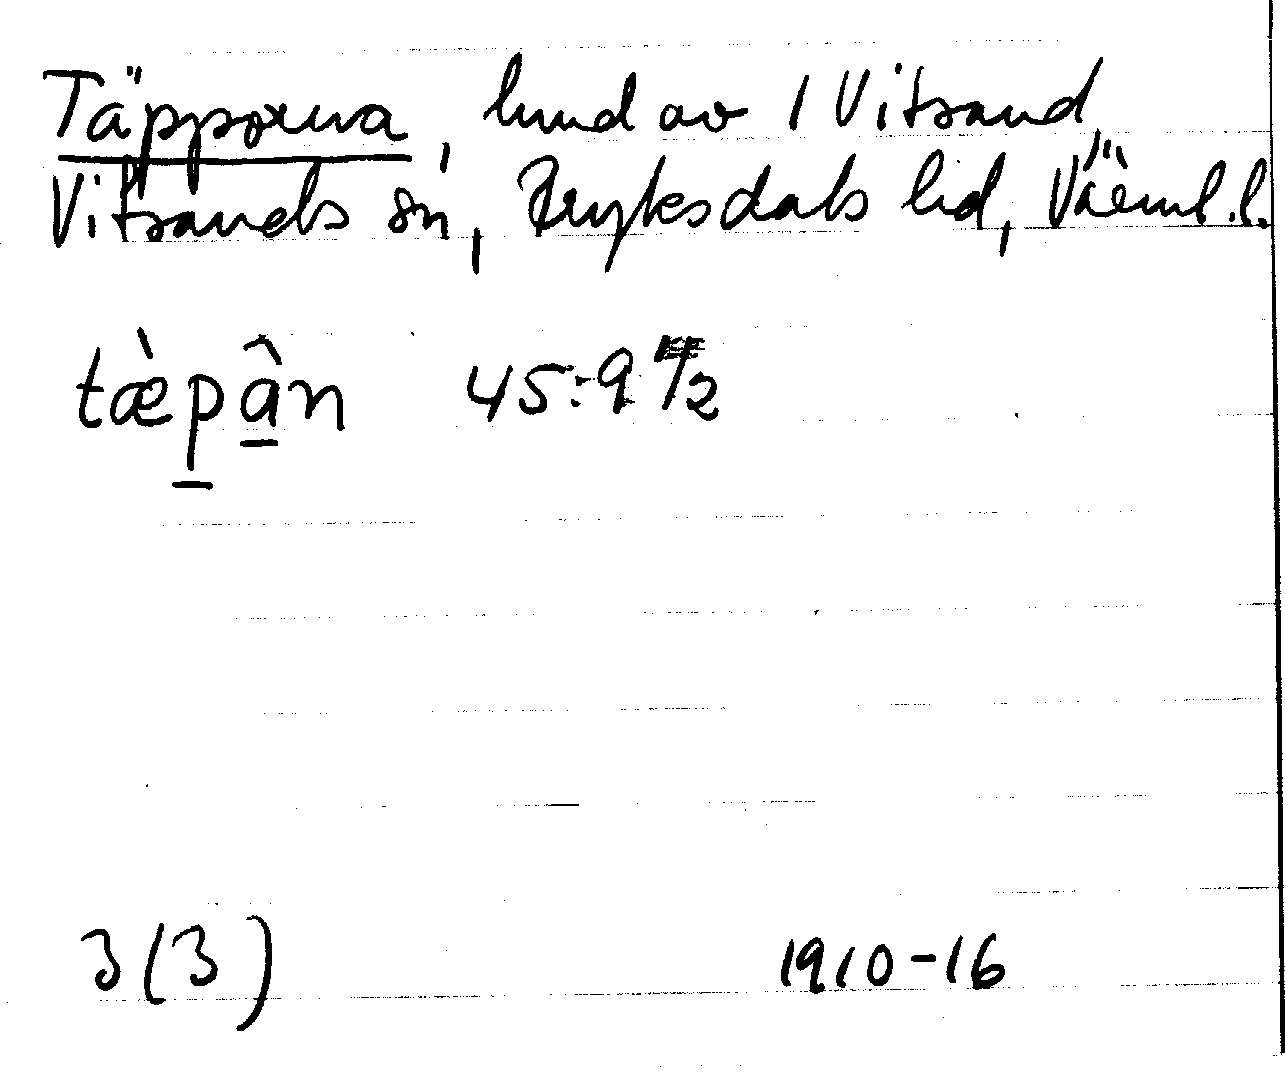 Täpporna, lund av 1 Vitsand,
Vitsands sn, Fryksdals hd, Värml. l.
tæ̀p̲â̲n 45:9 /2
3(3) 1910-16